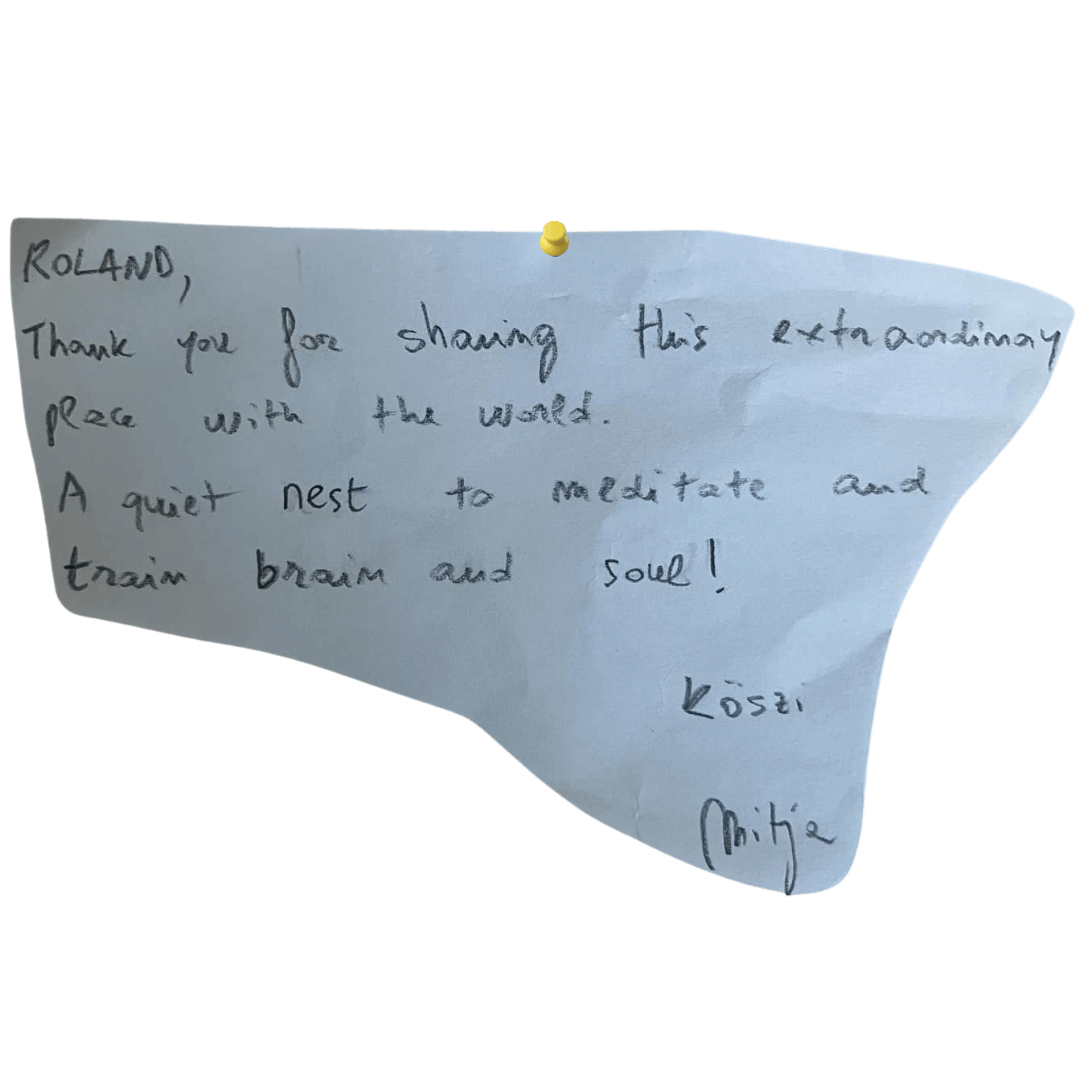 ROLAND,
Thank you for sharing this extraordinay
place with the world.
A quiet nest to meditate and
train brain and soul!
Köszi
Mitja